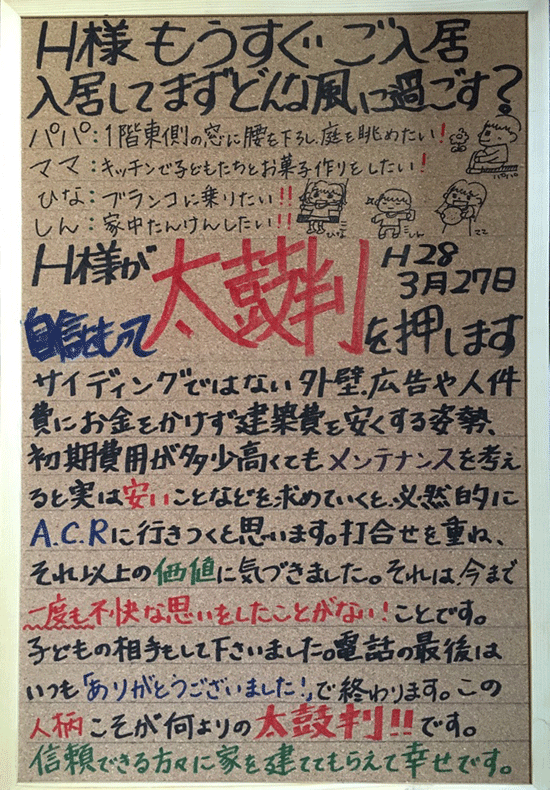 H様 もうすぐ ご入居
入居してまずどんな風に過ごす?
パパ:1階東側の窓に腰を下ろし、庭を眺めたい!
ママ:キッチンで子どもたちとお菓子作りをしたい!
ひな:ブランコに乗りたい!!
しん:家中たんけんしたい!!
パパ
ひな
しん
ママ
H様が
H28
3月27日
自信をもって
太鼓判
を押します
サイディングではない外壁、広告や人件
費にお金をかけず建築費を安くする姿勢、
初期費用が多少高くてもメンテナンスを考え
ると実は安いことなどを求めていくと、必然的に
A.C.Rに行きつくと思います。打合せを重ね、
それ以上の価値に気づきました。それは、今まで
一度も不快な思いをしたことがない!ことです。
子どもの相手もして下さいました。電話の最後は
いつも「ありがとうございました!」で終わります。この
人柄こそが何よりの太鼓判!!です。
信頼できる方々に家を建ててもらえて幸せです。